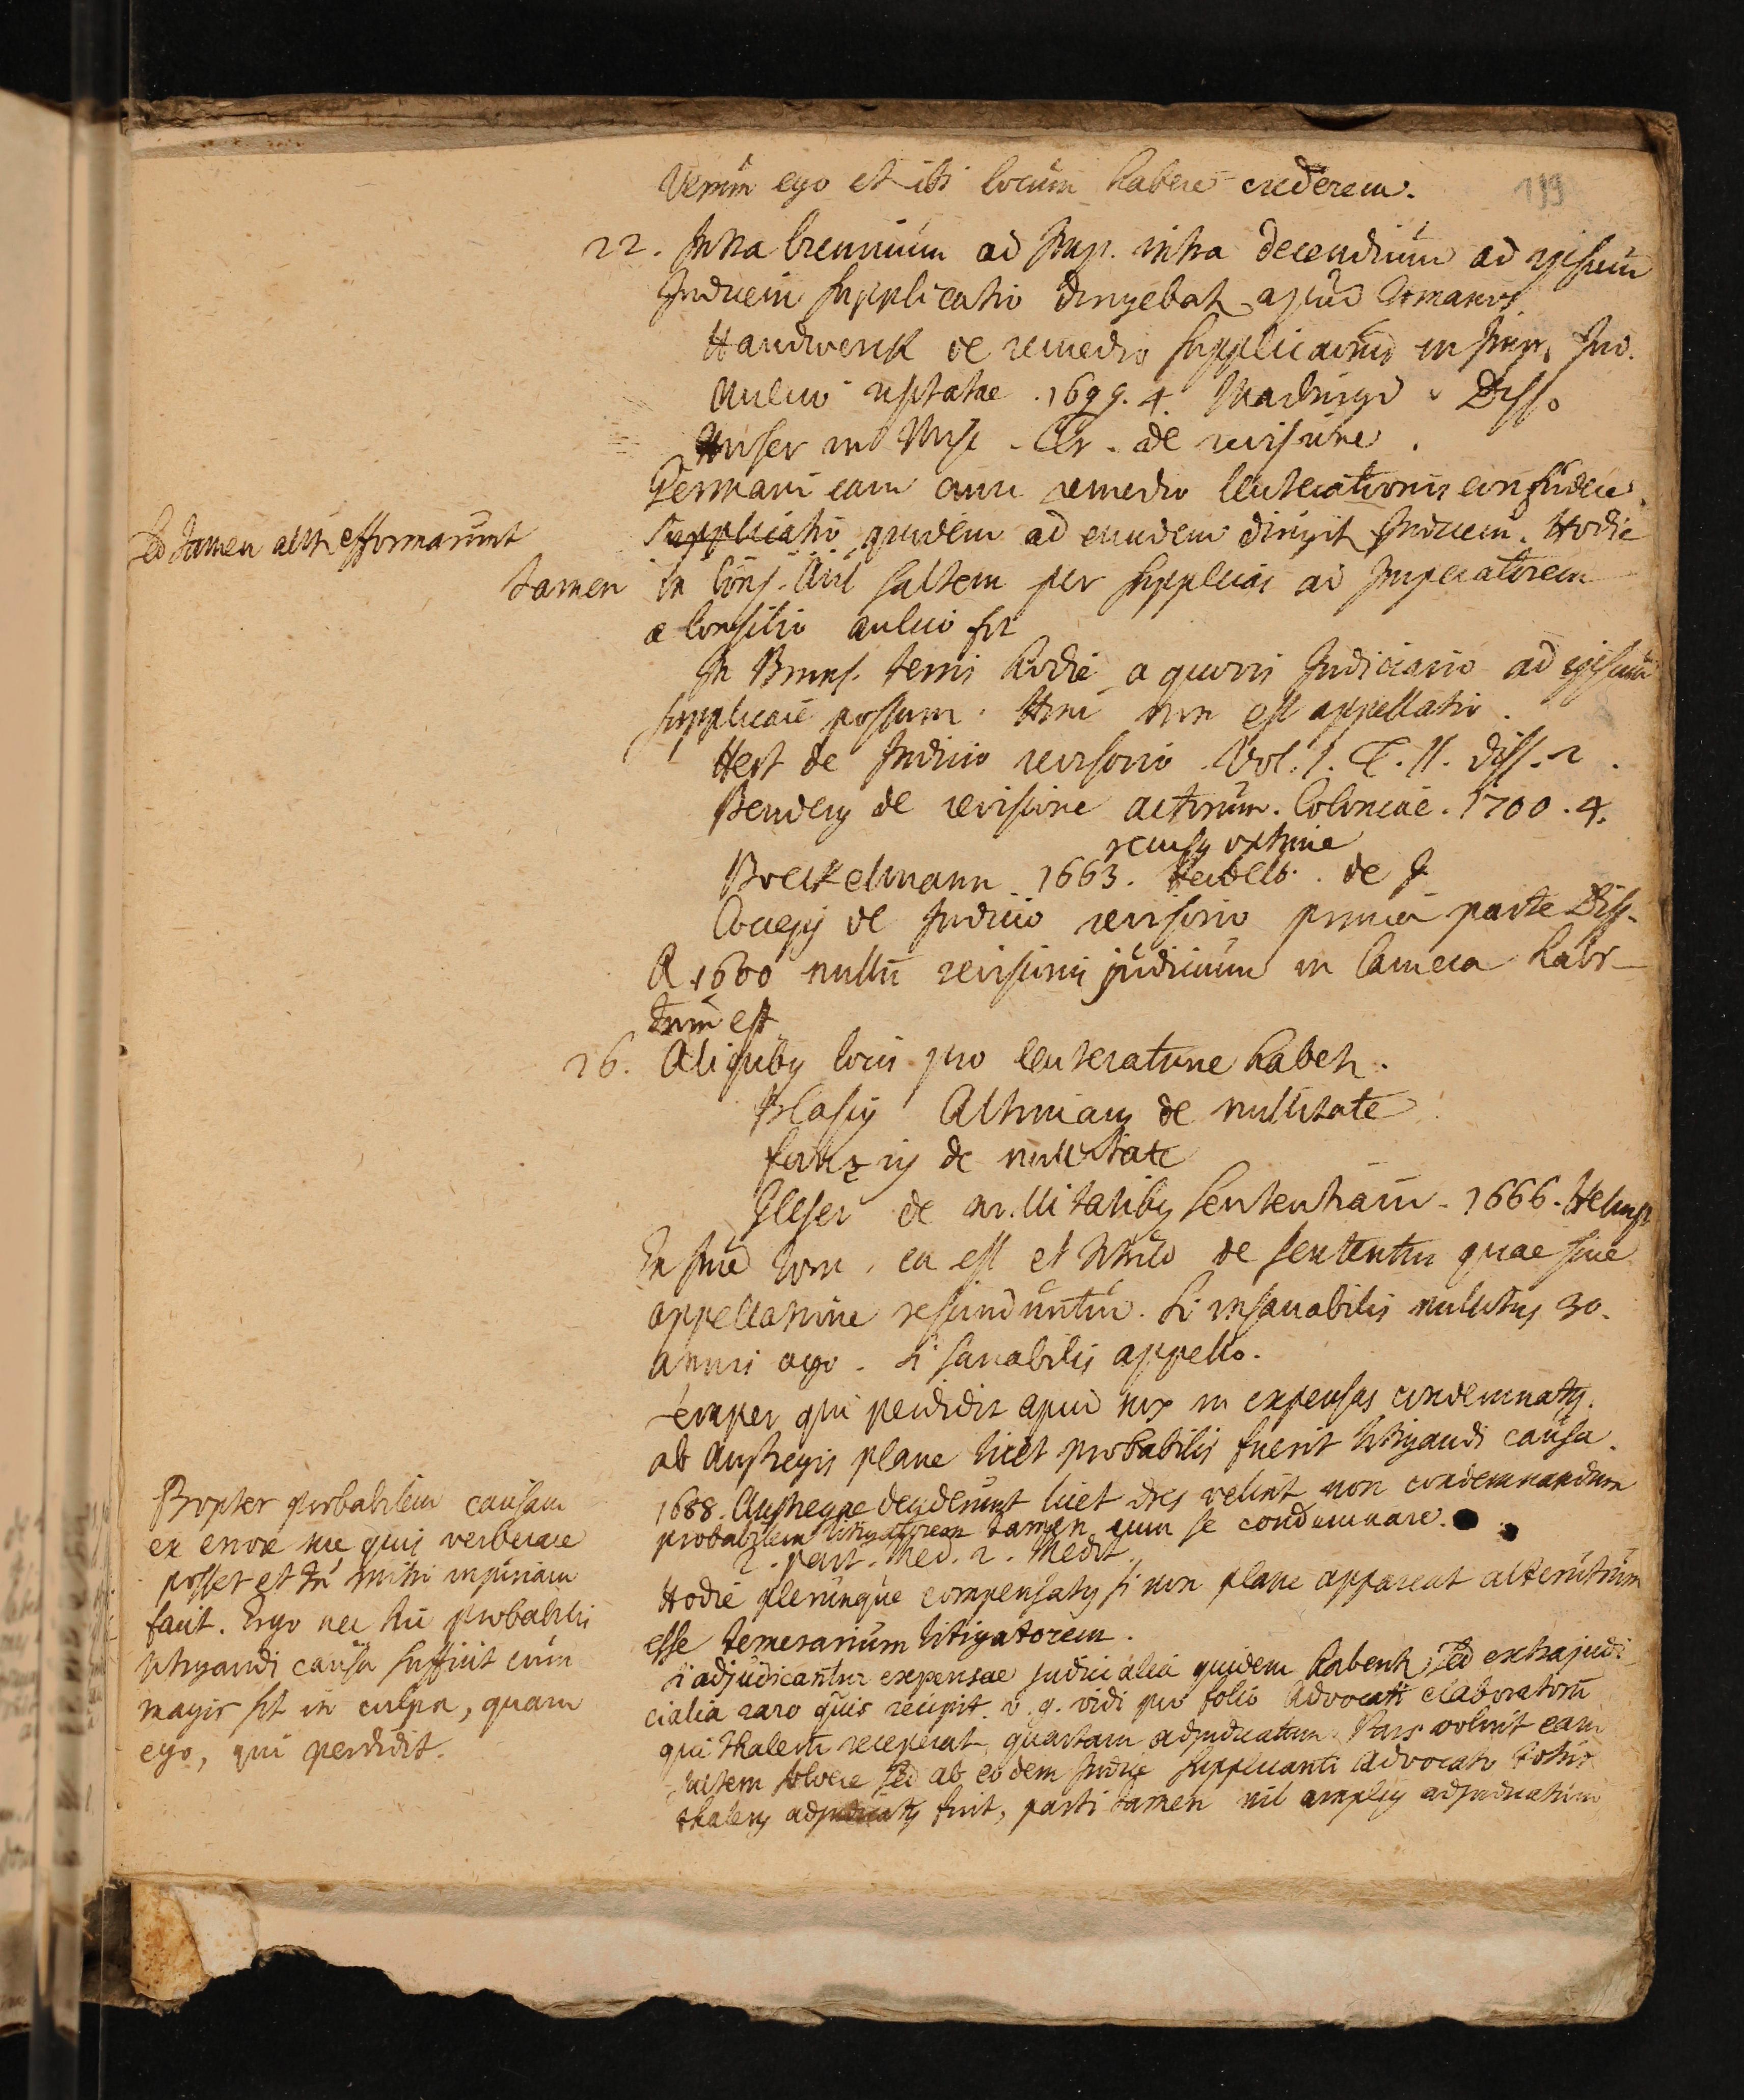 Verum ego et ibi locum habere crederem.
199
22. Intra biennium ad Imp. intra decendium ad ipsum
Judicem supplicatio dirigebatr apud Romanos
Handwerck de remedio supplicationis in Imp. Jud.
Aulico usitatae. 1699. 4. Diss.
de revisione.
Germani eam cum remedio leuterationis confudere.
Sed tamen aliter efformarunt
Supplicatio quidem ad eundem dirigitr Judicem. Hodie
tamen in Cons. Aul. saltem per supplicas ad Imperatorem
a Consilio aulico fit
In Bruns. terris hodie a quovis Judiciario ad ipsum
supplicare possum. Hinc non est appellatio.
Hert de Judicio revisorio Vol. 1. T. II. diss. 2.
de revisione actorum. Coloniae. 1700. 4.
recusq optime
Boeckelmann 1663. Heidelb. de J
Coccejq de Judicio revisorio prima parte Diss.
A. 1600 nullu revisionis judicium in Camera habi-
tum est
26. Aliquibq locis pro leuteratione habetr.
Blasiq Altimarq de nullitate
de nullitate
de nullitatibq sententiaru. 1666. Helmst
In Jure Rom. ea est et titulo de sententiis quae sine
appellatione rescinduntur. Si insanabilis nullitas 30.
annis ago. Si sanabilis appello.
Semper qui perdidit apud nos in expensas condemnatq.
ab Austregis plane licet probabilis fuerit litigandi causa.
1688. Austregae deciderunt licet dres velint non condemnandum
probabilem litigatorem tamen eum se condemnare.
2. part. Med. 2. Medit.
Hodie plerunque compensatq si non plane appareat alterutrum
esse temerarium litigatorem.
Si adjudicantur expensae judicialia quidem habentr, sed extrajudi
cialia raro quis recipit. v. g. vidi pro folio Advocati elaboratoru
qui thaleru receperat, quartam adjudicatam. Pars voluit eam
saltem solvere sed ab eodem Judice supplicanti advocato totus
thalerq adjudicatq fuit, parti tamen nil ampliq adjudicatum
Propter probabilem causam
ex errore me quis verberare
posset et tn mihi injuriam
facit. Ergo nec hic probabilis
litigandi causa sufficit cum
magis sit in culpa, quam
ego, qui perdidit.